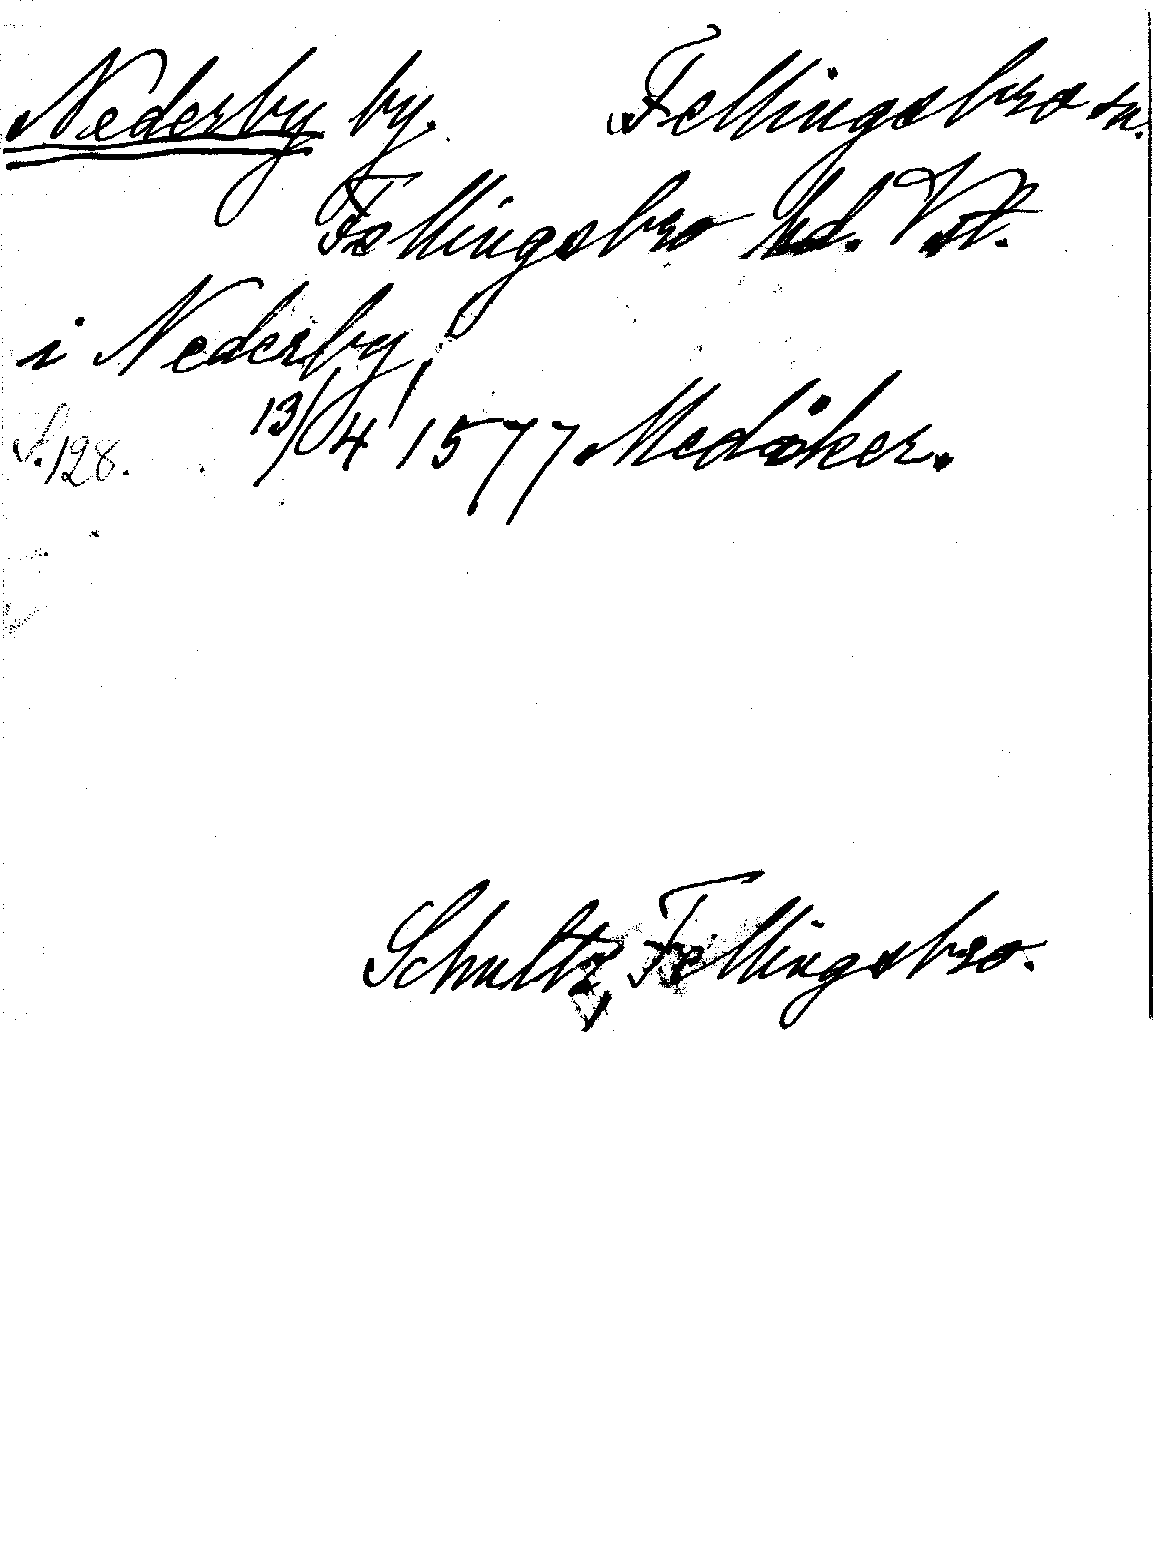 Nederby by. Fellingsbro sn.
Fellingsbro hd. Vstl.
i Nederby
S. 128. 13/4 1577 Medåker.
Schultz, Fellingsbro.